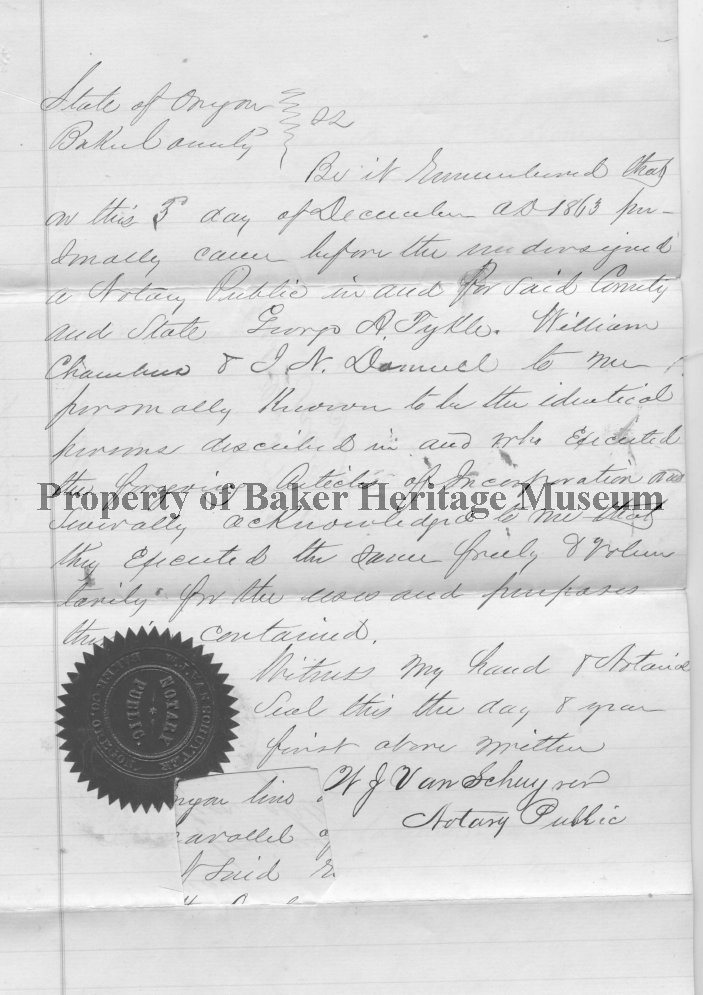 State of Oregon
Baker County } ss
Be it Remembered that
on this 5 day of December AD 1863 per-
sonally came before the undersigned
a Notary Public in and for said County
and State George A. Pykle. William
Chambers & I. N. Damuel to me
personally Known to be the identical
persons described in and who Executed
the foregoing Articles of Incorporation and
Severally acknowledged to me that
they Executed the same freely & volun
tarily for the uses and purposes
contained.
Witness my hand & Notarial
Seal this the day & year
first above written
W J Van Schuyver
Notary Public
NOTARY
PUBLIC
line
Said
Property of Baker Heritage Museum